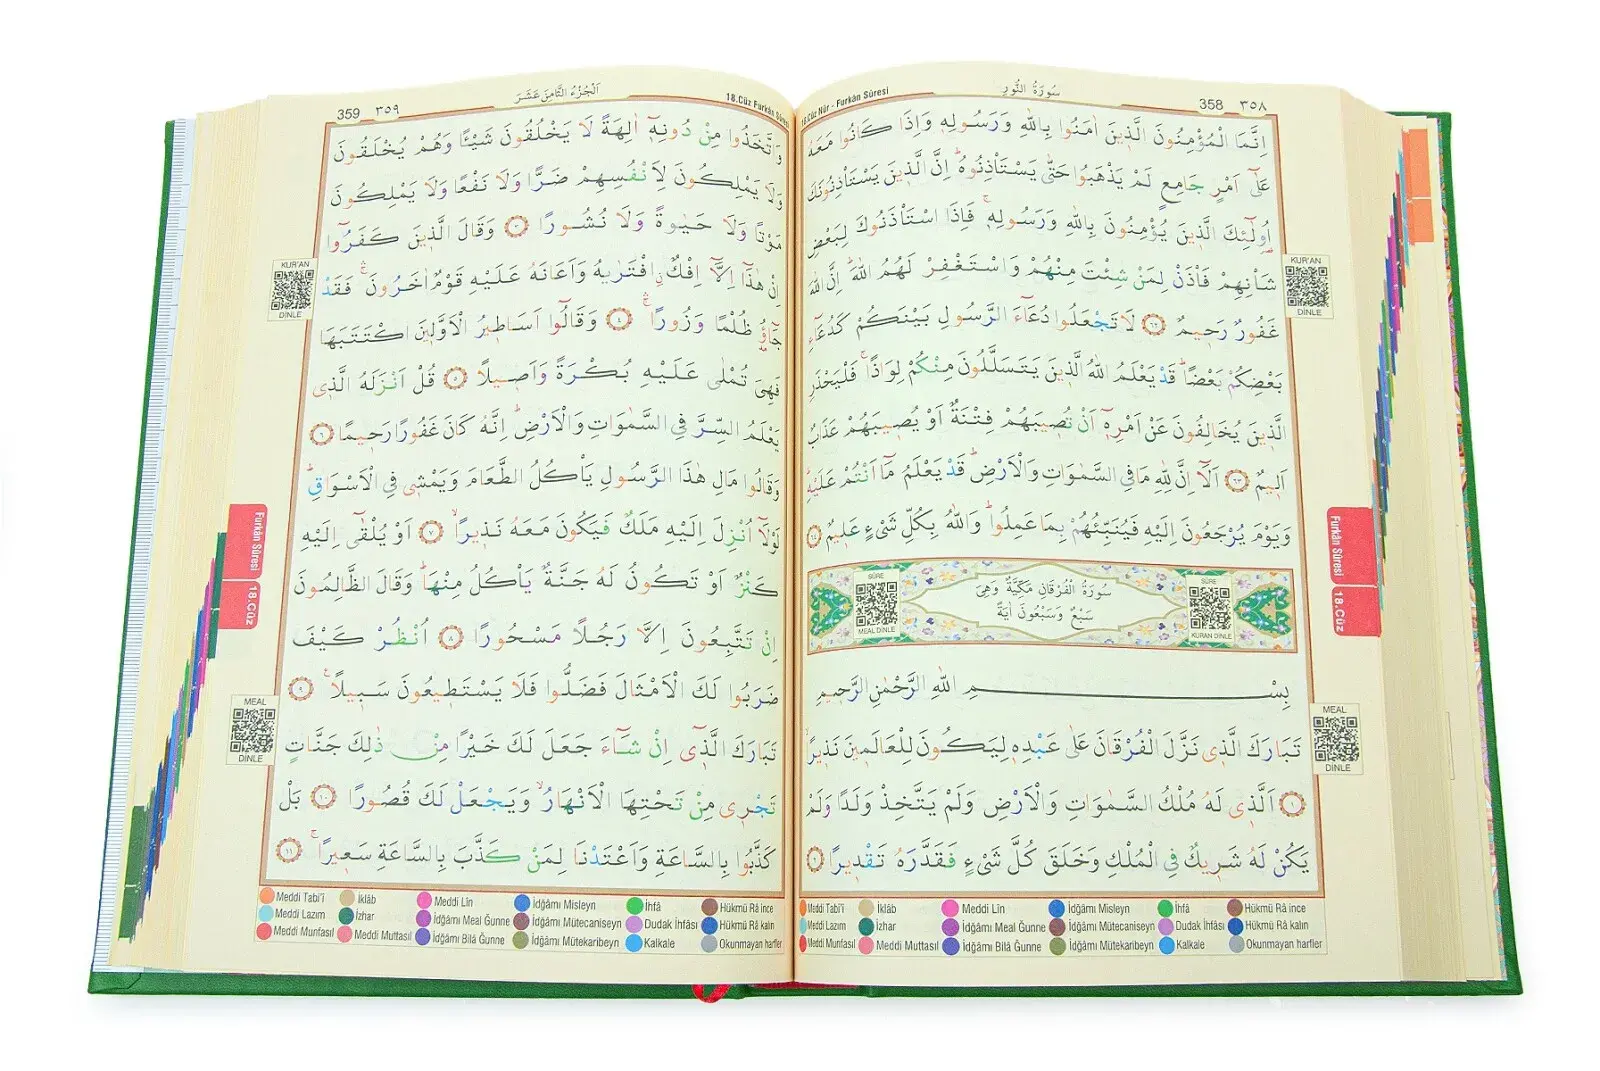 سُورَةُ النُّورِ
358 ٣٥٨
18.Cüz Nûr - Furkân Sûresi
اِنَّمَا الْمُؤْمِنُونَ الَّذ۪ينَ اٰمَنُوا بِاللّٰهِ وَرَسُولِه۪ وَاِذَا كَانُوا مَعَهُ
عَلٰٓى اَمْرٍ جَامِعٍ لَمْ يَذْهَبُوا حَتّٰى يَسْتَأْذِنُوهُۜ اِنَّ الَّذ۪ينَ يَسْتَأْذِنُونَكَ
اُو۬لٰٓئِكَ الَّذ۪ينَ يُؤْمِنُونَ بِاللّٰهِ وَرَسُولِه۪ۚ فَاِذَا اسْتَأْذَنُوكَ لِبَعْضِ
شَأْنِهِمْ فَأْذَنْ لِمَنْ شِئْتَ مِنْهُمْ وَاسْتَغْفِرْ لَهُمُ اللّٰهَۜ اِنَّ اللّٰهَ
غَفُورٌ رَح۪يمٌ ﴿٦٢﴾ لَا تَجْعَلُوا دُعَٓاءَ الرَّسُولِ بَيْنَكُمْ كَدُعَٓاءِ
بَعْضِكُمْ بَعْضًاۜ قَدْ يَعْلَمُ اللّٰهُ الَّذ۪ينَ يَتَسَلَّلُونَ مِنْكُمْ لِوَاذًاۚ فَلْيَحْذَرِ
الَّذ۪ينَ يُخَالِفُونَ عَنْ اَمْرِه۪ٓ اَنْ تُص۪يبَهُمْ فِتْنَةٌ اَوْ يُص۪يبَهُمْ عَذَابٌ
اَل۪يمٌ ﴿٦٣﴾ اَلَٓا اِنَّ لِلّٰهِ مَا فِي السَّمٰوَاتِ وَالْاَرْضِۜ قَدْ يَعْلَمُ مَٓا اَنْتُمْ عَلَيْهِۜ
وَيَوْمَ يُرْجَعُونَ اِلَيْهِ فَيُنَبِّئُهُمْ بِمَا عَمِلُواۜ وَاللّٰهُ بِكُلِّ شَيْءٍ عَل۪يمٌ ﴿٦٤﴾
SÛRE
KURAN DİNLE
سُورَةُ الْفُرْقَانِ مَكِّيَّةٌ وَهِيَ
سَبْعٌ وَسَبْعُونَ اٰيَةً
SÛRE
MEAL DİNLE
بِسْمِ اللّٰهِ الرَّحْمٰنِ الرَّح۪يمِ
تَبَارَكَ الَّذ۪ي نَزَّلَ الْفُرْقَانَ عَلٰى عَبْدِه۪ لِيَكُونَ لِلْعَالَم۪ينَ نَذ۪يرًاۙ
﴿١﴾ اَلَّذ۪ي لَهُ مُلْكُ السَّمٰوَاتِ وَالْاَرْضِ وَلَمْ يَتَّخِذْ وَلَدًا وَلَمْ
يَكُنْ لَهُ شَر۪يكٌ فِي الْمُلْكِ وَخَلَقَ كُلَّ شَيْءٍ فَقَدَّرَهُ تَقْد۪يرًا ﴿٢﴾
KUR'AN
DİNLE
Furkân Sûresi
18.Cüz
MEAL
DİNLE
Meddi Tabi'î İklâb Meddi Lîn İdğâmı Misleyn İhfâ Hükmü Râ ince
Meddi Lazım İzhar İdğâmı Meal Ğunne İdğâmı Mütecaniseyn Dudak İhfâsı Hükmü Râ kalın
Meddi Munfasıl Meddi Muttasıl İdğâmı Bilâ Ğunne İdğâmı Mütekaribeyn Kalkale Okunmayan harfler
359 ٣٥٩
اَلْجُزْءُ الثَّامِنَ عَشَرَ
18.Cüz Furkân Sûresi
وَاتَّخَذُوا مِنْ دُونِه۪ٓ اٰلِهَةً لَا يَخْلُقُونَ شَيْـًٔا وَهُمْ يُخْلَقُونَ
وَلَا يَمْلِكُونَ لِاَنْفُسِهِمْ ضَرًّا وَلَا نَفْعًا وَلَا يَمْلِكُونَ
مَوْتًا وَلَا حَيٰوةً وَلَا نُشُورًا ﴿٣﴾ وَقَالَ الَّذ۪ينَ كَفَرُٓوا
اِنْ هٰذَٓا اِلَّٓا اِفْكٌۨ افْتَرٰيهُ وَاَعَانَهُ عَلَيْهِ قَوْمٌ اٰخَرُونَۚۛ فَقَدْ
جَٓاؤُ۫ ظُلْمًا وَزُورًاۚۛ ﴿٤﴾ وَقَالُٓوا اَسَاط۪يرُ الْاَوَّل۪ينَ اكْتَتَبَهَا
فَهِيَ تُمْلٰى عَلَيْهِ بُكْرَةً وَاَص۪يلًا ﴿٥﴾ قُلْ اَنْزَلَهُ الَّذ۪ي
يَعْلَمُ السِّرَّ فِي السَّمٰوَاتِ وَالْاَرْضِۜ اِنَّهُ كَانَ غَفُورًا رَح۪يمًا ﴿٦﴾
وَقَالُوا مَالِ هٰذَا الرَّسُولِ يَأْكُلُ الطَّعَامَ وَيَمْش۪ي فِي الْاَسْوَاقِۜ
لَوْلَٓا اُنْزِلَ اِلَيْهِ مَلَكٌ فَيَكُونَ مَعَهُ نَذ۪يرًاۙ ﴿٧﴾ اَوْ يُلْقٰٓى اِلَيْهِ
كَنْزٌ اَوْ تَكُونُ لَهُ جَنَّةٌ يَأْكُلُ مِنْهَاۜ وَقَالَ الظَّالِمُونَ
اِنْ تَتَّبِعُونَ اِلَّا رَجُلًا مَسْحُورًا ﴿٨﴾ اُنْظُرْ كَيْفَ
ضَرَبُوا لَكَ الْاَمْثَالَ فَضَلُّوا فَلَا يَسْتَط۪يعُونَ سَب۪يلًاۚ ﴿٩﴾
تَبَارَكَ الَّذ۪ٓي اِنْ شَٓاءَ جَعَلَ لَكَ خَيْرًا مِنْ ذٰلِكَ جَنَّاتٍ
تَجْر۪ي مِنْ تَحْتِهَا الْاَنْهَارُۙ وَيَجْعَلْ لَكَ قُصُورًا ﴿١٠﴾ بَلْ
كَذَّبُوا بِالسَّاعَةِ وَاَعْتَدْنَا لِمَنْ كَذَّبَ بِالسَّاعَةِ سَع۪يرًاۚ ﴿١١﴾
KUR'AN
DİNLE
Furkân Sûresi
18.Cüz
MEAL
DİNLE
Meddi Tabi'î İklâb Meddi Lîn İdğâmı Misleyn İhfâ Hükmü Râ ince
Meddi Lazım İzhar İdğâmı Meal Ğunne İdğâmı Mütecaniseyn Dudak İhfâsı Hükmü Râ kalın
Meddi Munfasıl Meddi Muttasıl İdğâmı Bilâ Ğunne İdğâmı Mütekaribeyn Kalkale Okunmayan harfler